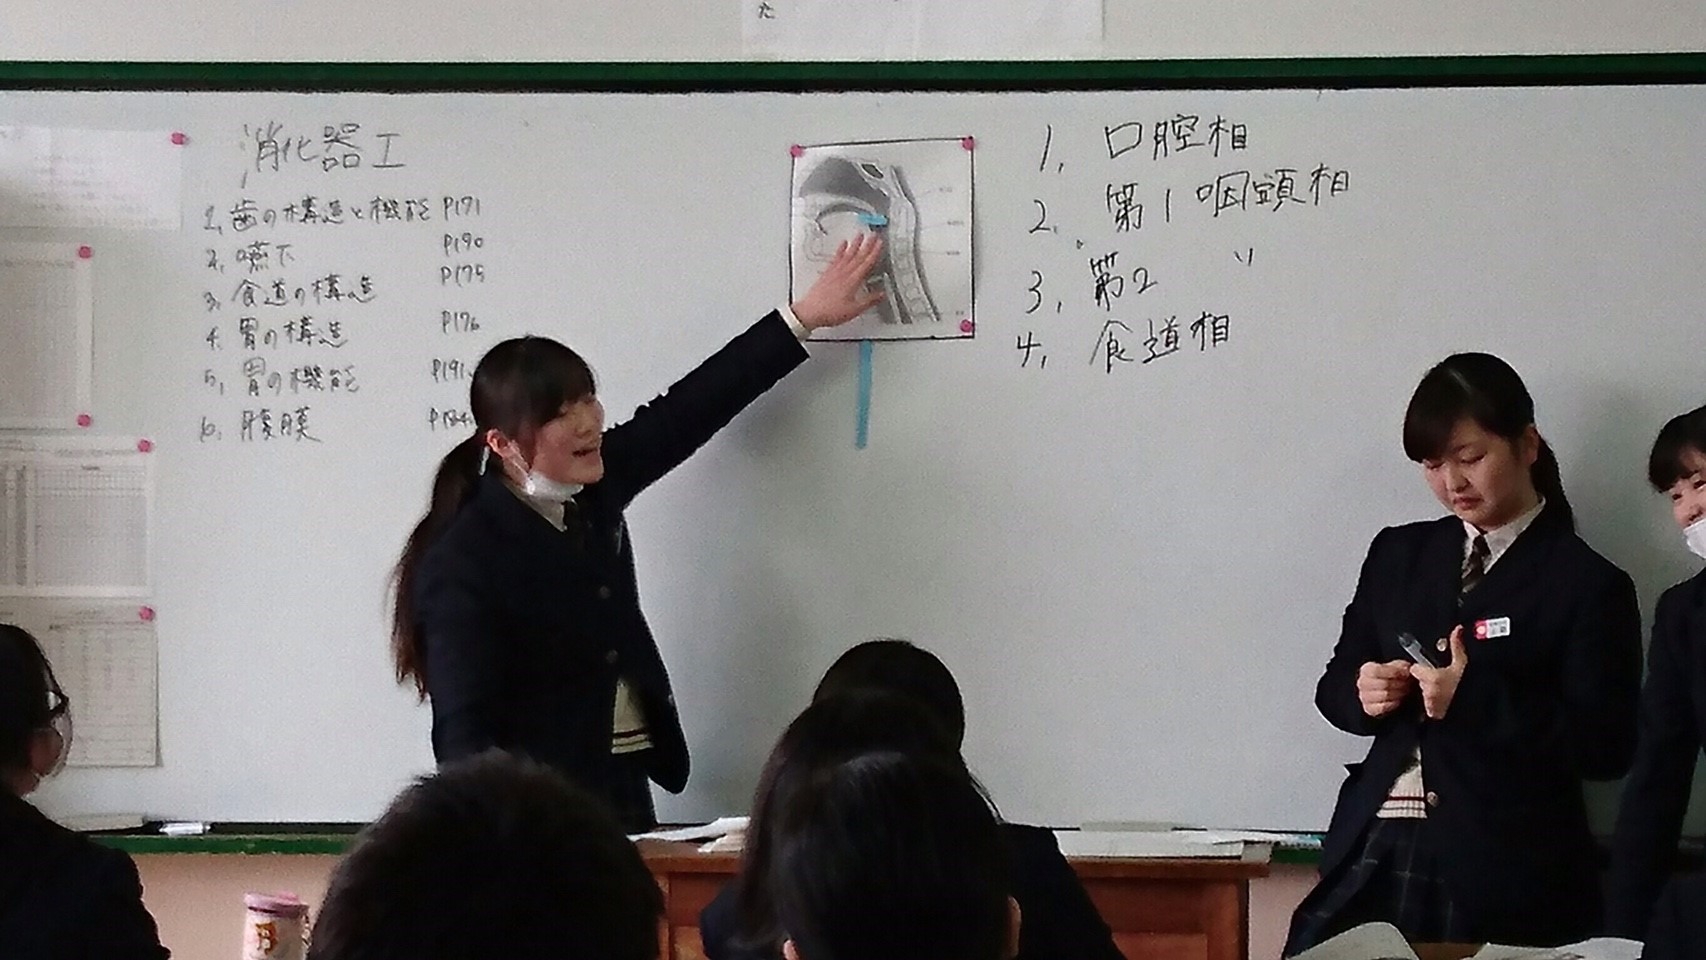 た
消化器 I
1. 歯の構造と機能 P171
2. 嚥下 P190
3. 食道の構造 P175
4. 胃の構造 P176
5. 胃の機能 P191
6. 腹膜
1. 口腔相
2. 第1咽頭相
3. 第2 〃
4. 食道相
B